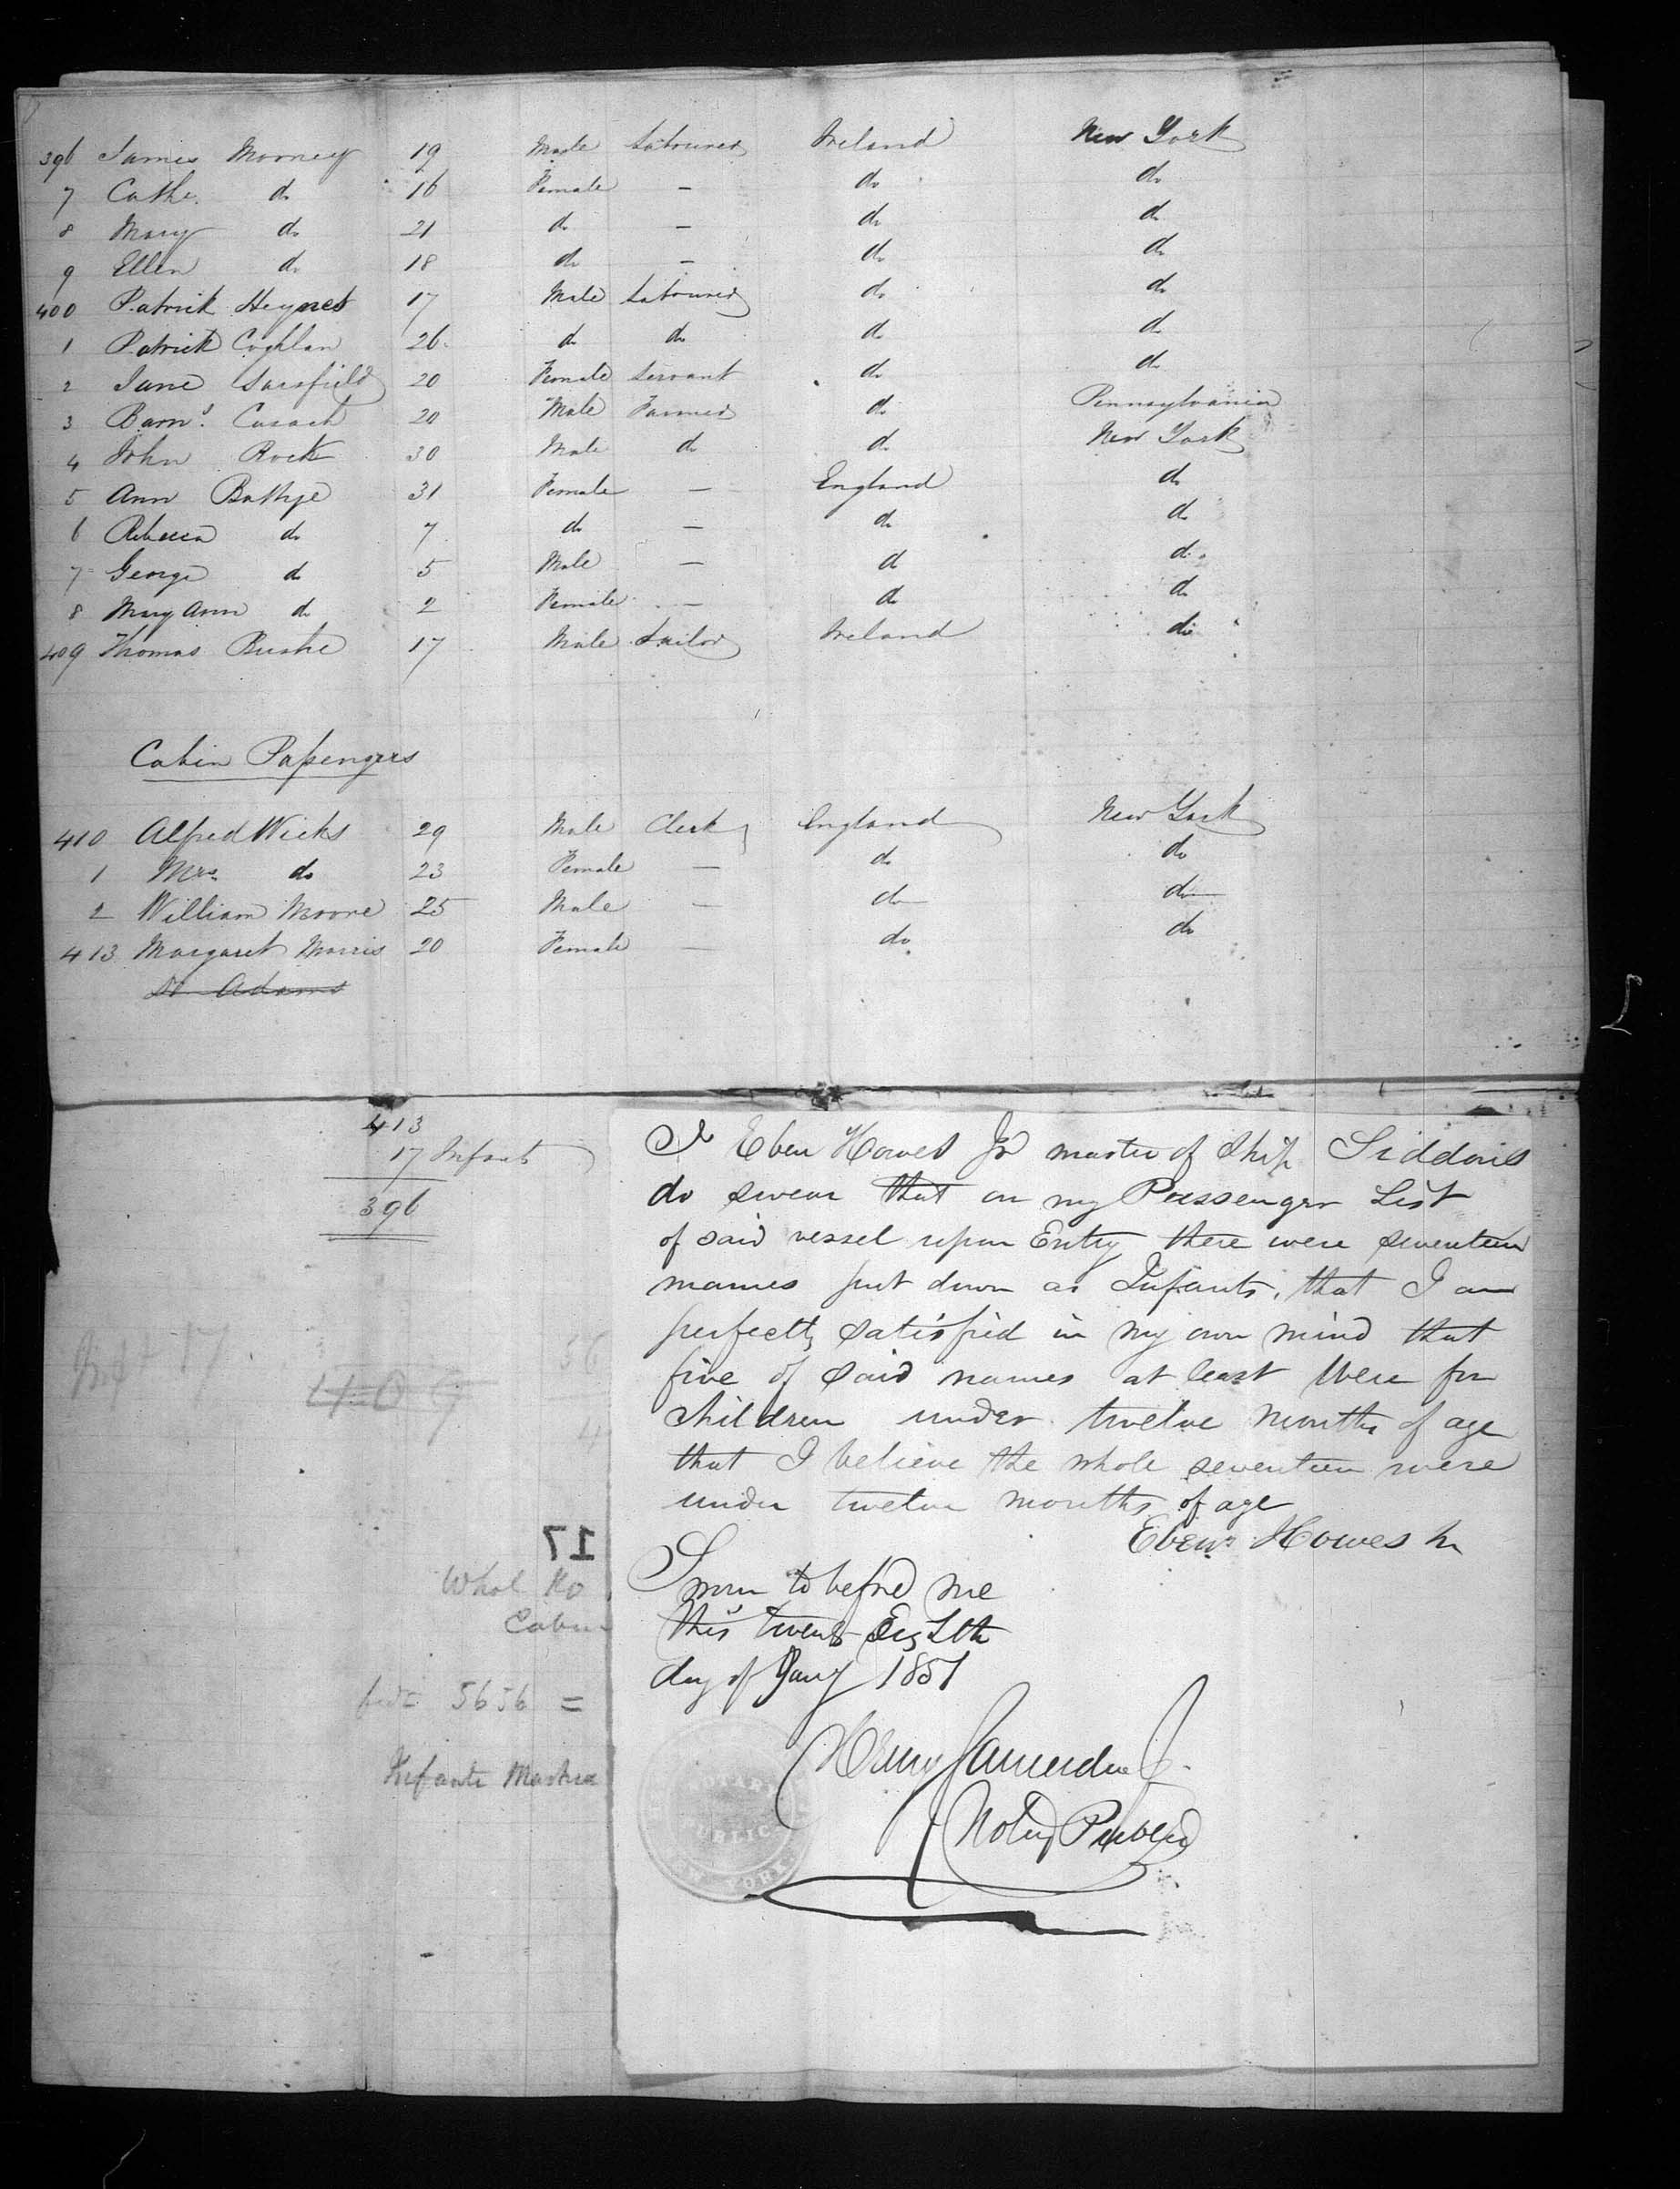 396 James Mooney 19 Male Labourer Ireland New York
7 Cathe. do 16 Female — do do
8 Mary do 21 do — do do
9 Ellen do 18 do — do do
400 Patrick 17 Male Labourer do do
1 Patrick Coghlan 26 do do do do
2 Jane Sarsfield 20 Female Servant do do
3 Barnd. Cusack 20 Male Farmer do Pennsylvania
4 John Rock 30 Male do do New York
5 Ann 31 Female — England do
6 Rebecca do 7 do — do do
7 George do 5 Male — do do
8 Mary Ann do 2 Female — do do
409 Thomas 17 Male Ireland do
Cabin Passengers
410 Alfred Wicks 29 Male Clerk England New York
1 Mrs. do 23 Female — do do
2 William Moore 25 Male — do do
413 Margaret Morris 20 Female — do do
Adams
413
17 Infants
396
Inf 17
409
17
Cabin
5656 =
Infants
I Eben Howes Jr master of Ship Siddons
do swear that on my Passenger List
of said vessel upon Entry there were seventeen
names put down as Infants, that I am
perfectly satisfied in my own mind that
five of said names at least were for
children under twelve months of age
that I believe the whole seventeen were
under twelve months of age
Eben. Howes Jr
Sworn to before me
this twenty Eighth
day of Jany 1851
Henry
Notary Public
NOTARY
PUBLIC
NEW YORK